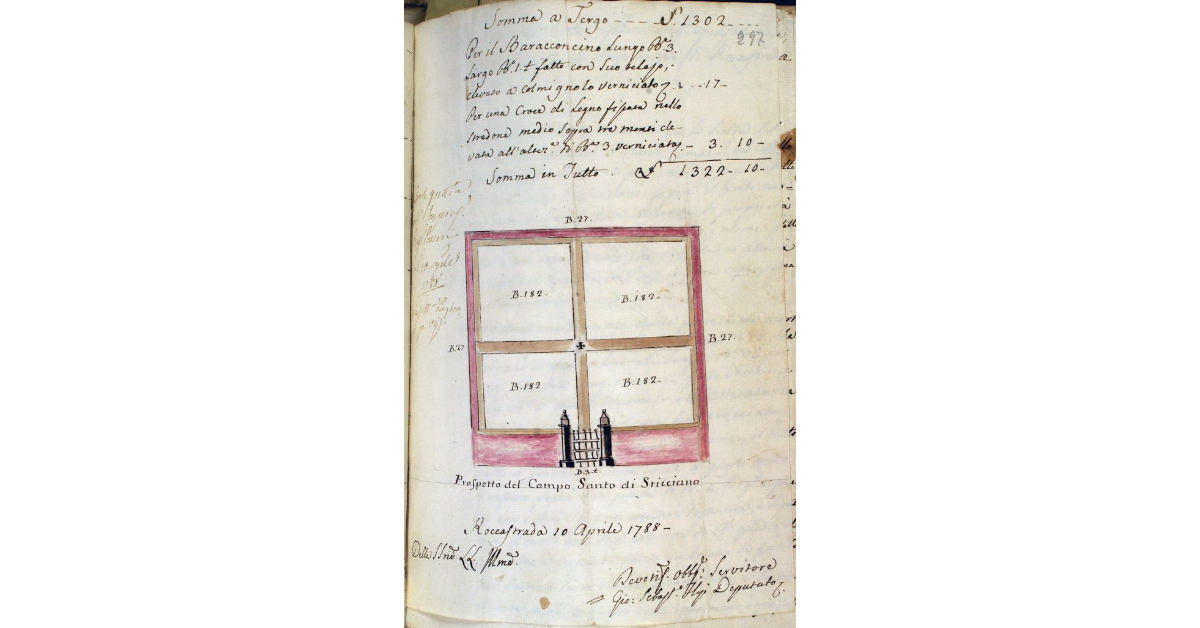 Somma a Tergo - - - - - - £. 1302 - - - -
297
Per il Baracconcino Lungo Bª. 3.
Largo Bª. 1.t fatto con suo telajo,
elevato a Colmignolo verniciato - - - 17 -
Per una Croce di Legno fissata nello
stradone medio sopra tre monti ele-
vata all'altezª. di Bª. 3. verniciata - 3. 10 -
Somma in Tutto. £ 1322 - 10 -
B. 27.
B. 182 -
B. 182 -
B. 27
B. 27.
B. 182
B. 182 -
B. 3. t.
Prospetto del Campo Santo di Sticciano
Roccastrada 10 Aprile 1788 -
Delle SSrie. LL. Illme.
Devotis. Obb. Servitore
Gio: Sebast. Deputato